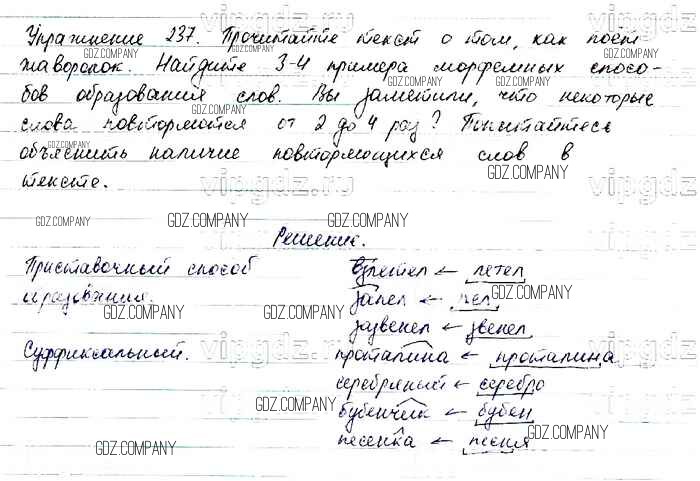 Упражнение 237. Прочитайте текст о том, как поет
жаворонок. Найдите 3-4 примера морфемных спосо-
бов образования слов. Вы заметили, что некоторые
слова повторяются от 2 до 4 раз? Попытайтесь
объяснить наличие повторяющихся слов в
тексте.
Решение.
Приставочный способ взлетел ← летел
образования. запел ← пел
зазвенел ← звенел
Суффиксальный. проталина ← проталина
серебряный ← серебро
бубенчик ← бубен
песенка ← песня
vipgdz.ru
GDZ.COMPANY